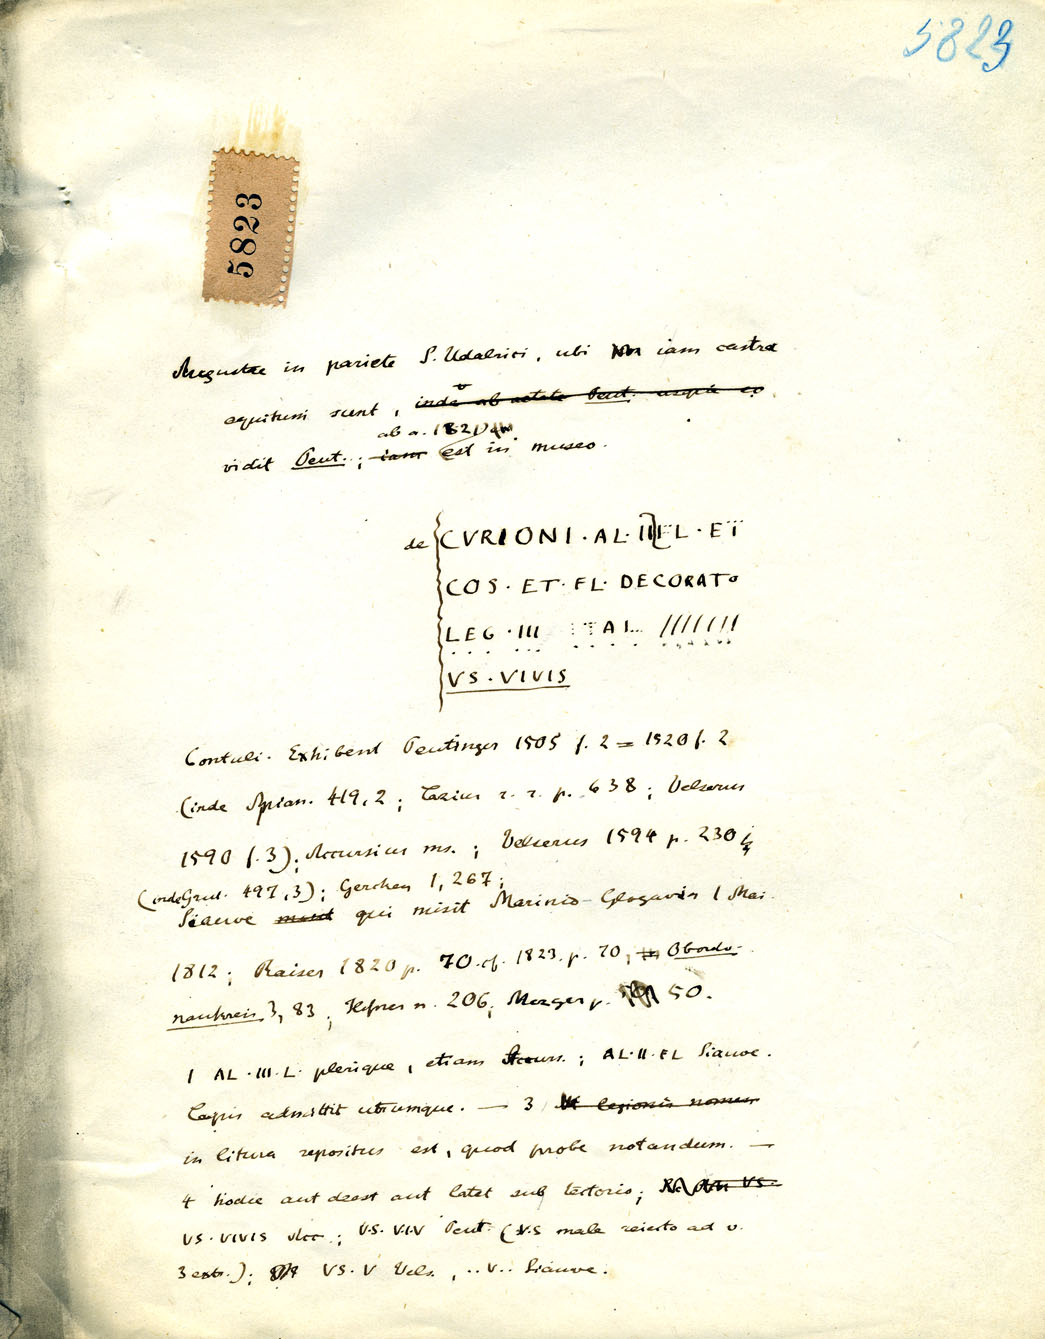 5823
5823
Augustae in pariete S. Udalrici, ubi iam castra
equitum sunt, inde ab aetate Peut. usque eo
ab a. 1821
vidit Peut.; iam est in museo.
de CVRIONI · AL · II FL · ET
COS · ET · FL · DECORATO
LEG · III ITAL ///////
VS · VIVIS
Contuli. Exhibent Peutinger 1505 f. 2 = 1520 f. 2
(inde Apian. 419, 2; Lazius r. r. p. 638; Velserus
1590 f. 3); Accursius ms.; Velserus 1594 p. 230
(inde Grut. 497, 3); Gerchen 1, 267;
Siauve qui misit Marinio 1 Mai.
1812; Raiser 1820 p. 70 cf. 1823. p. 20, Oberdo-
naukreis 3, 83; Hefner n. 206; Mezger p. 50.
1 AL · III · L · plerique, etiam Accurs.; AL · II · FL Siauve.
Lapis admittit utrumque. — 3 legionis nomen
in litura repositus est, quod probe notandum. —
4 hodie aut deest aut latet sub tectorio; VS ·
VS · VIVIS Acc.; V·S· VIV Peut. (V·S male reiecto ad v.
3 extr.); VS · V Vels., ..V.. Siauve.